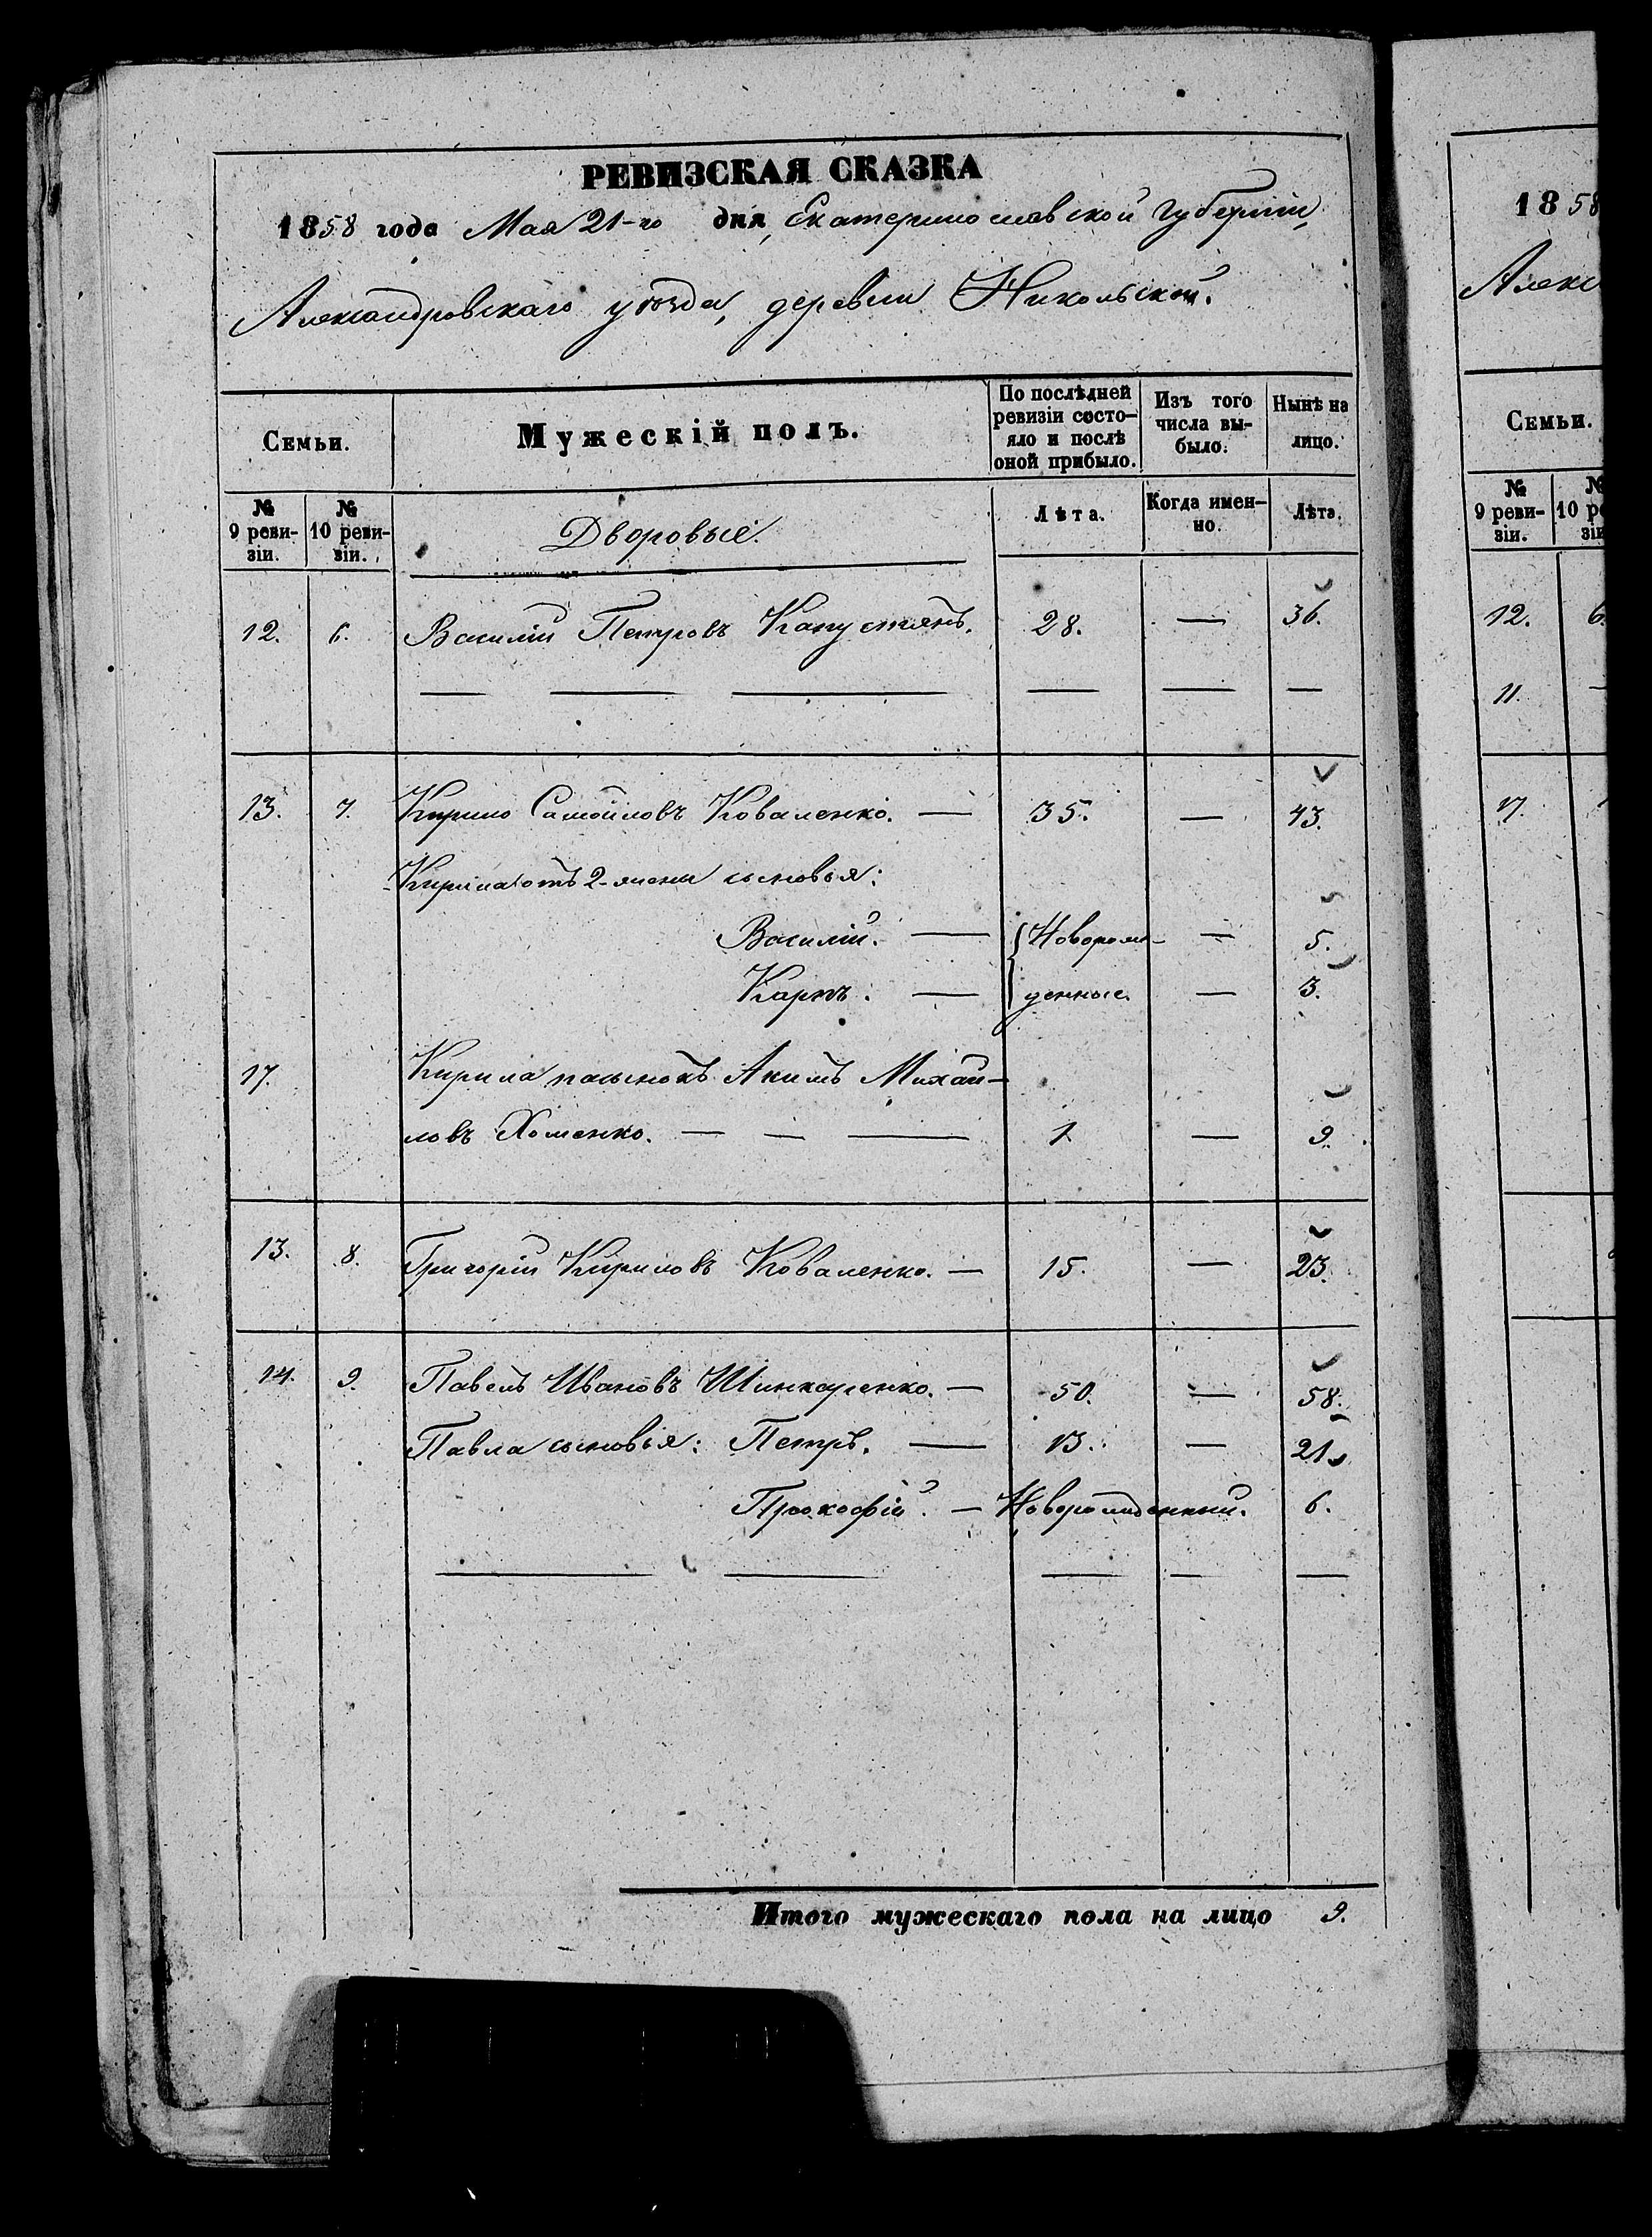 РЕВИЗСКАЯ СКАЗКА
1858 года Мая 21-го дня, Екатеринославской Губерніи,
Александровскаго уѣзда, деревни Никольской.
Семьи. Мужескій полъ. По послѣдней ревизіи состо-яло и послѣ оной прибыло. Изъ того числа вы-было. Нынѣ на лицо.
№ 9 реви-зіи. № 10 реви-зіи. Дворовые. Лѣта. Когда имен-но. Лѣта.
12. 6. Василій Петровъ Капустянъ. 28. — 36.
13. 7. Кирило Самойловъ Коваленко. — 35. — 43.
Кирила отъ 2-жены сыновья:
Василій. — Новорож- — 5.
Карпъ. — денные. — 3.
17. Кирила пасынокъ Акимъ Михай-
ловъ Хоменко. — — — 1 — 9.
13. 8. Григорій Кириловъ Коваленко. — 15. — 23.
14. 9. Павелъ Ивановъ Шинкаренко. — 50. — 58.
Павла сыновья: Петръ. — 13. — 21.
Прокофій. — Новорожденный. 6.
Итого мужескаго пола на лицо 9.
1858
Алекс
Семьи.
№ 9 реви-зіи. № 10 ре зіи
12. 6.
11. —
17.